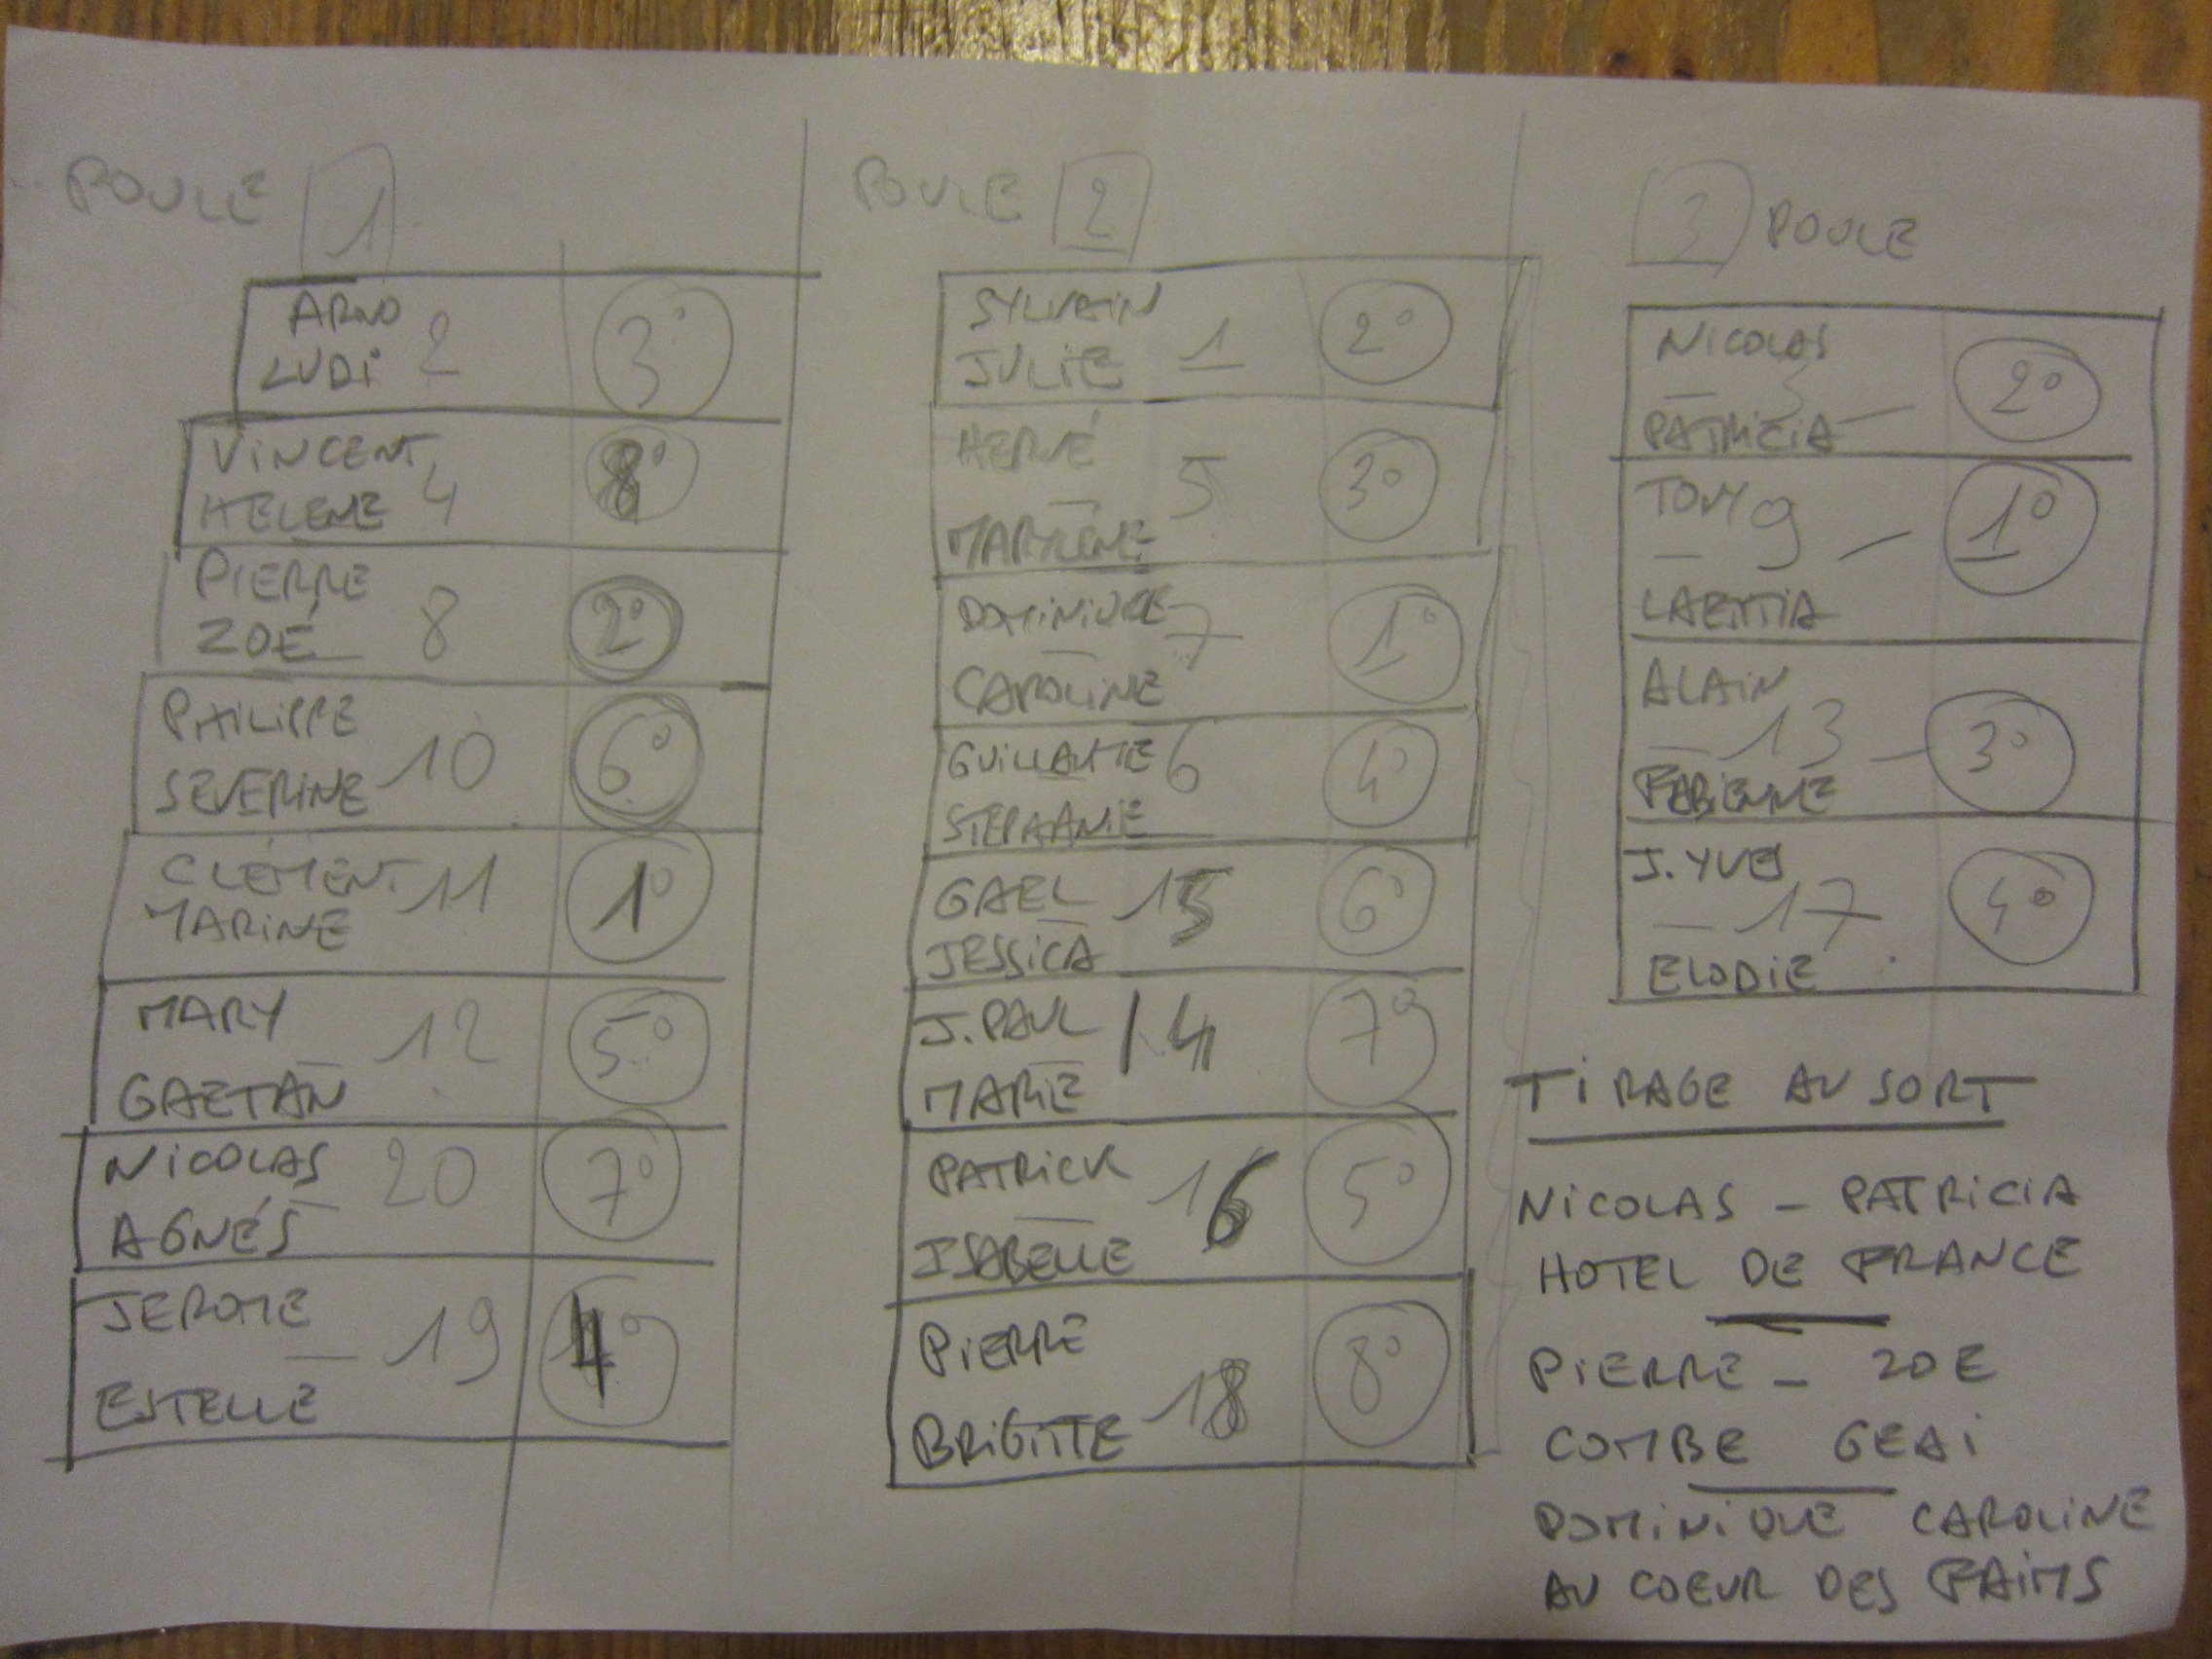 POULE 1
ARNO
LUDI 2 3°
VINCENT
HELENE 4 8°
PIERRE
ZOÉ 8 2°
PHILIPPE
SEVERINE 10 6°
CLÉMENT 11 1°
MARINE
MARY
12 5°
GAETAN
NICOLAS 20 7°
AGNÉS
JEROME
— 19 4°
ESTELLE
POULE 2
SYLVAIN
JULIE 1 2°
HERVÉ
— 5 3°
MARYLENE
DOMINIQUE 7 1°
—
CAROLINE
GUILLAUME 6 4°
STEPHANIE
GAEL 15 6°
—
JESSICA
J.PAUL 14 7°
—
MARIE
PATRICK 16 5°
—
ISABELLE
PIERRE
18 8°
BRIGITTE
3 POULE
NICOLAS
— 3 — 2°
PATRICIA
TONY 9 — 1°
—
LAETITIA
ALAIN
— 13 — 3°
FABIENNE
J.YVES
— 17 4°
ELODIE
TIRAGE AU SORT
NICOLAS - PATRICIA
HOTEL DE FRANCE
PIERRE - ZOE
COMBE GEAI
DOMINIQUE CAROLINE
AU COEUR DES FAIMS